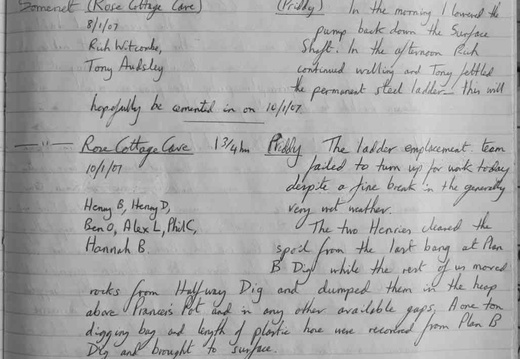 Somerset (Rose Cottage Cave) (Priddy) In the morning I lowered the
8/1/07 pump back down the Surface
Rich Witcombe, Shaft. In the afternoon Rich
Tony Audsley continued walling and Tony fettled
the permanent steel ladder – this will
hopefully be cemented in on 10/1/07
—"— Rose Cottage Cave 1 3/4 hrs Priddy The ladder emplacement team
10/1/07 failed to turn up for work today
despite a fine break in the generally
Henry B, Henry D, very wet weather.
Ben O, Alex L, Phil C, The two Henries cleared the
Hannah B. spoil from the last bang at Plan
B Dig while the rest of us moved
rocks from Halfway Dig and dumped them in the heap
above Prancer's Pot and in any other available gaps, A one ton
digging bag and length of plastic hose were recovered from Plan B
Dig and brought to surface.